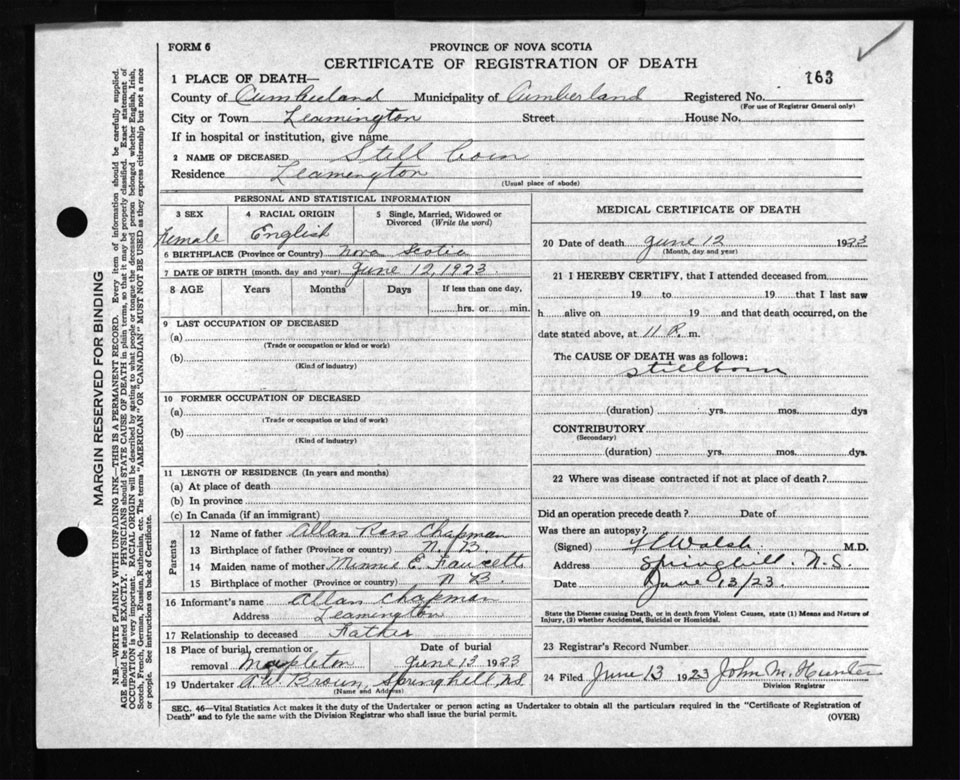 FORM 6
PROVINCE OF NOVA SCOTIA
CERTIFICATE OF REGISTRATION OF DEATH
163
1 PLACE OF DEATH—
County of Cumberland Municipality of Cumberland Registered No.
(For use of Registrar General only)
City or Town Leamington Street House No.
If in hospital or institution, give name
2 NAME OF DECEASED Still born
Residence Leamington
(Usual place of abode)
PERSONAL AND STATISTICAL INFORMATION
3 SEX Female
4 RACIAL ORIGIN English
5 Single, Married, Widowed or Divorced (Write the word)
6 BIRTHPLACE (Province or Country) Nova Scotia
7 DATE OF BIRTH (month, day and year) June 12, 1923
8 AGE Years Months Days If less than one day,
hrs. or min.
9 LAST OCCUPATION OF DECEASED
(a)
(Trade or occupation or kind or work)
(b)
(Kind of industry)
10 FORMER OCCUPATION OF DECEASED
(a)
(Trade or occupation or kind of work)
(b)
(Kind of industry)
11 LENGTH OF RESIDENCE (In years and months)
(a) At place of death
(b) In province
(c) In Canada (if an immigrant)
Parents
12 Name of father Allan Ross Chapman
13 Birthplace of father (Province or country) N. B.
14 Maiden name of mother Minnie E. Faucett
15 Birthplace of mother (Province or country) N B.
16 Informant's name Allan Chapman
Address Leamington
17 Relationship to deceased Father
18 Place of burial, cremation or removal Mapleton
Date of burial
June 13 1923
19 Undertaker A. W. Brown, Springhill, N.S.
(Name and Address)
MEDICAL CERTIFICATE OF DEATH
20 Date of death June 12 1923
(Month, day and year)
21 I HEREBY CERTIFY, that I attended deceased from
19 to 19 that I last saw
h alive on 19 and that death occurred, on the
date stated above, at 11 P. m.
The CAUSE OF DEATH was as follows:
Stillborn
(duration) yrs. mos. dys
CONTRIBUTORY
(Secondary)
(duration) yrs. mos. dys.
22 Where was disease contracted if not at place of death?
Did an operation precede death? Date of
Was there an autopsy?
(Signed) Walsh M.D.
Address Springhill. N.S.
Date June 13/23.
State the Disease causing Death, or in death from Violent Causes, state (1) Means and Nature of
Injury, (2) whether Accidental, Suicidal or Homicidal.
23 Registrar's Record Number
24 Filed June 13 1923 John M. Hunter
Division Registrar
SEC. 46—Vital Statistics Act makes it the duty of the Undertaker or person acting as Undertaker to obtain all the particulars required in the "Certificate of Registration of
Death" and to fyle the same with the Division Registrar who shall issue the burial permit. (OVER)
MARGIN RESERVED FOR BINDING
N.B.—WRITE PLAINLY WITH UNFADING INK—THIS IS A PERMANENT RECORD. Every item of information should be carefully supplied.
AGE should be stated EXACTLY. PHYSICIANS should STATE CAUSE OF DEATH in plain terms, so that it may be properly classified. Exact statement of
OCCUPATION is very important. RACIAL ORIGIN will be described by stating to what people or tongue the deceased person belonged whether English, Irish,
Scotch, French, German, Russian, Ruthenian, etc. The terms "AMERICAN" OR "CANADIAN" MUST NOT BE USED as they express citizenship but not a race
or people. See instructions on back of Certificate.